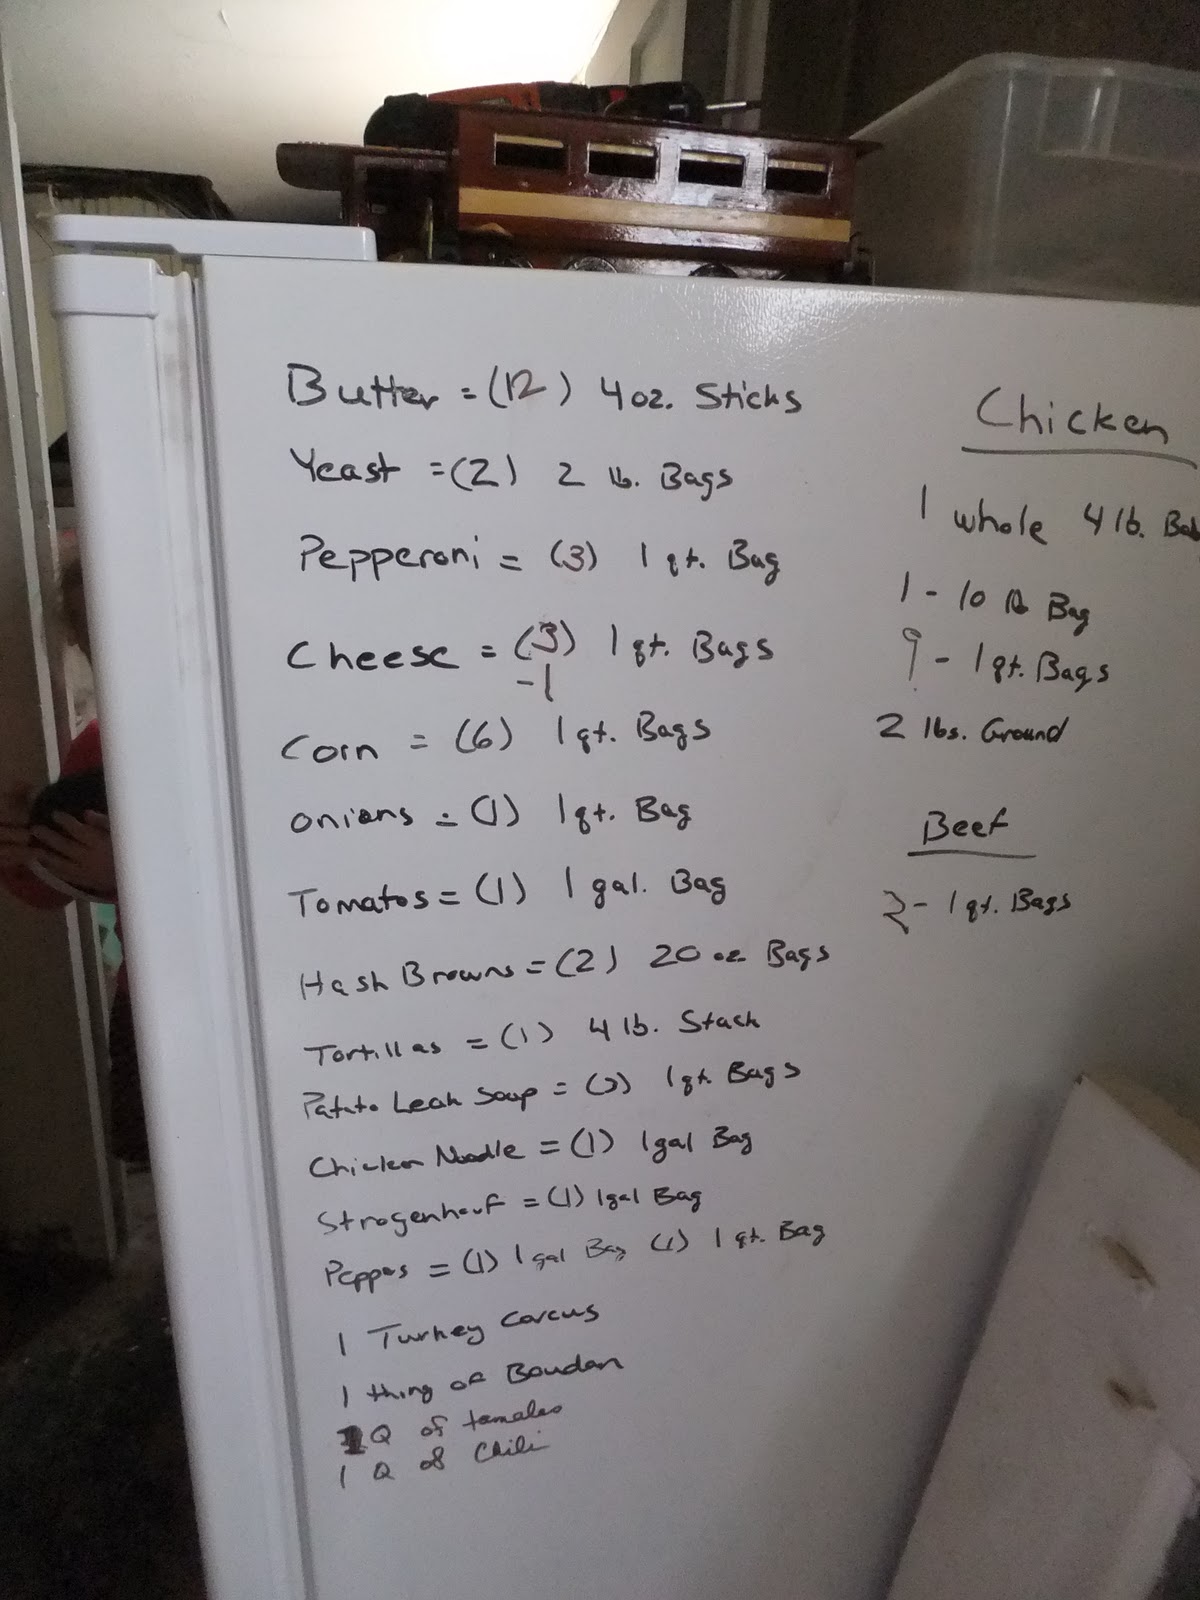 Butter = (12) 4 oz. Sticks
Yeast = (2) 2 lb. Bags
Pepperoni = (3) 1 qt. Bag
Cheese = (3) 1 qt. Bags
-1
Corn = (6) 1 qt. Bags
Onions = (1) 1 qt. Bag
Tomatos = (1) 1 gal. Bag
Hash Browns = (2) 20 oz Bags
Tortillas = (1) 4 lb. Stack
Patato Leak Soup = (2) 1 qt. Bags
Chicken Noodle = (1) 1 gal Bag
Strogenhouf = (1) 1 gal Bag
Peppers = (1) 1 gal Bag (1) 1 qt. Bag
1 Turkey Carcus
1 thing of Boudan
1 Q of tamales
1 Q of Chili
Chicken
1 whole 4 lb.
1 - 10 lb Bag
9 - 1 qt. Bags
2 lbs. Ground
Beef
2 - 1 qt. Bags